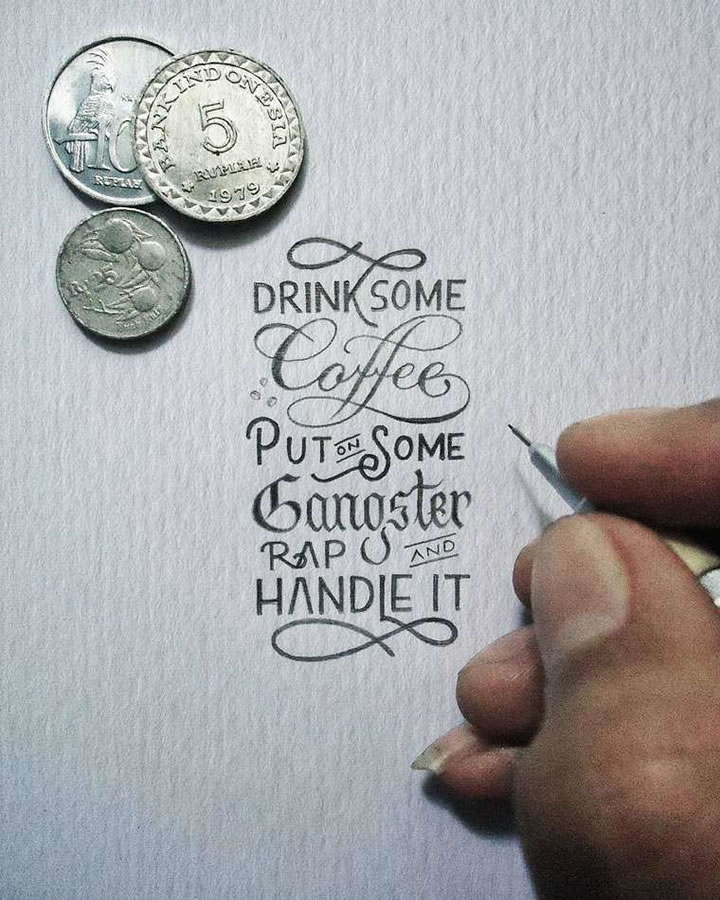 10
RUPIAH
BANK INDONESIA
5
RUPIAH
1979
DRINK SOME
Coffee
PUT ON SOME
Gangster
RAP AND
HANDLE IT